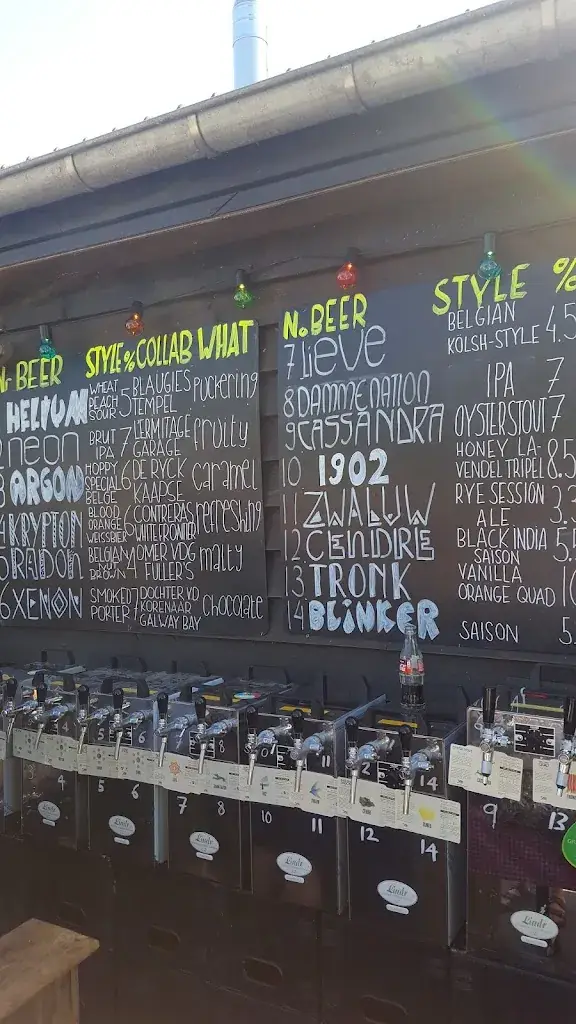 No BEER STYLE % COLLAB WHAT
HELIUM WHEAT PEACH SOUR 5 BLAUGIES TEMPEL puckering
2 neon BRUT IPA 7 L'ERMITAGE GARAGE fruity
3 ARGON HOPPY SPECIAL BELGE 6 DE RYCK KAAPSE caramel
4 KRYPTON BLOOD ORANGE WEISSBIER 6 CONTRERAS WHITE FRONTIER refreshing
5 RADON BELGIAN BROWN 4 OMER VDG FULLER'S malty
6 XENON SMOKED PORTER 7 DOCHTER VD KORENAAR GALWAY BAY chocolate
No BEER STYLE %
7 lieve BELGIAN KÖLSH-STYLE 4.5
8 DAMMENATION IPA 7
9 CASSANDRA OYSTERSTOUT 7
10 1902 HONEY LAVENDEL TRIPEL 8.5
11 ZWALUW RYE SESSION ALE 3.
12 CENDIRE BLACK INDIA SAISON 5.
13 TRONK VANILLA ORANGE QUAD 10
14 BLINKER SAISON 5.
4
5 6
7 8
10 11
12 14
9 13
Lindr
Lindr
Lindr
Lindr
Lindr
Lindr